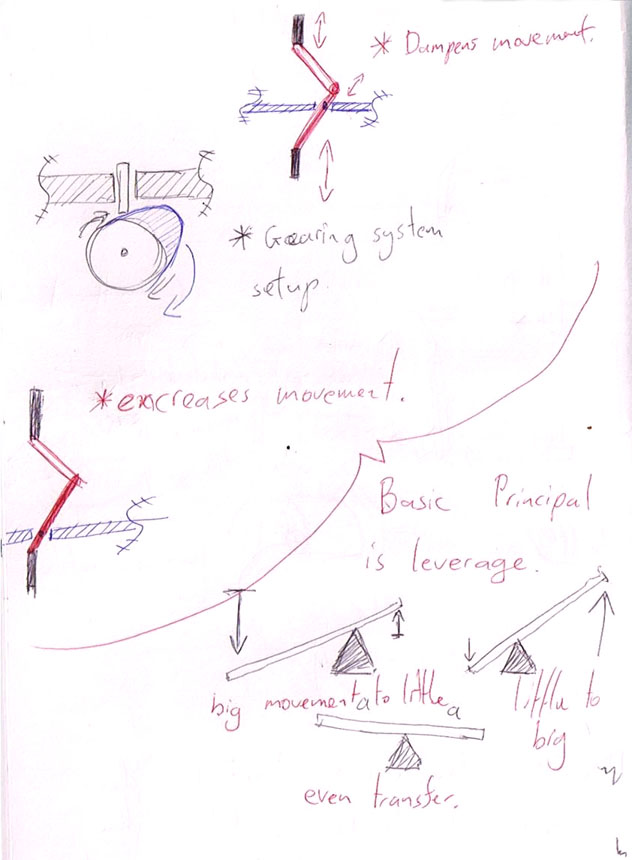 * Dampens movement.
* Gearing system
setup.
* encreases movement.
Basic Principal
is leverage.
big movement a to little a
little to
big
even transfer.